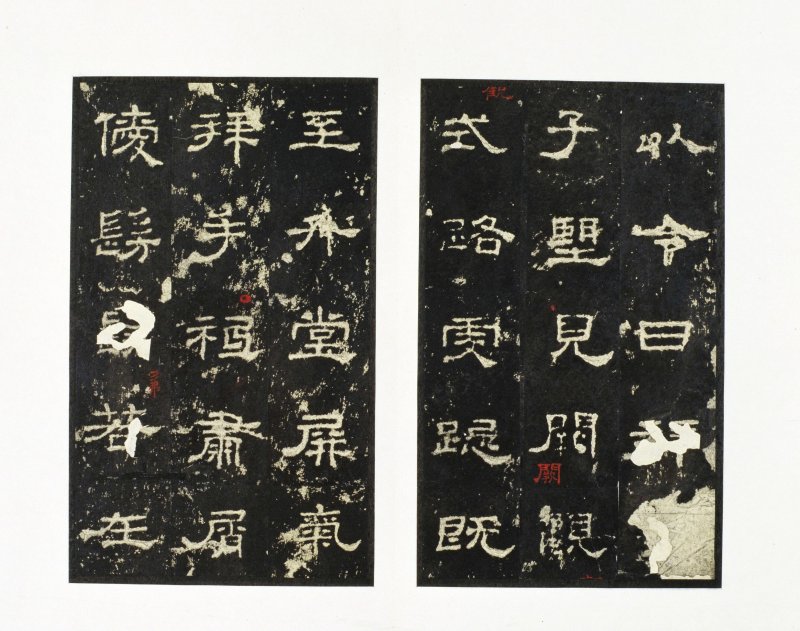 以令日拜
子望見闕觀
闕
式路虔跽既
至升堂屏氣
拜手祗肅屑
僾髣髴若在